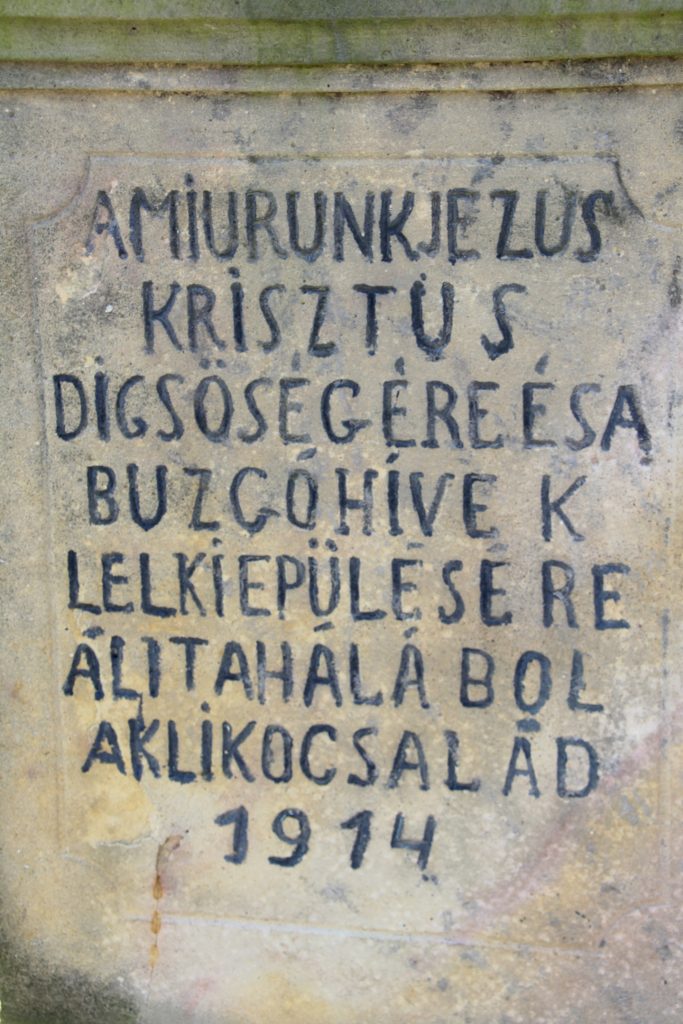 AMIURUNKJÉZUS
KRISZTUS
DIGSÖSÉGÉREÉSA
BUZGÓHÍVEK
LELKIEPÜLÉSÉRE
ÁLITAHÁLÁBOL
AKLIKOCSALÁD
1914